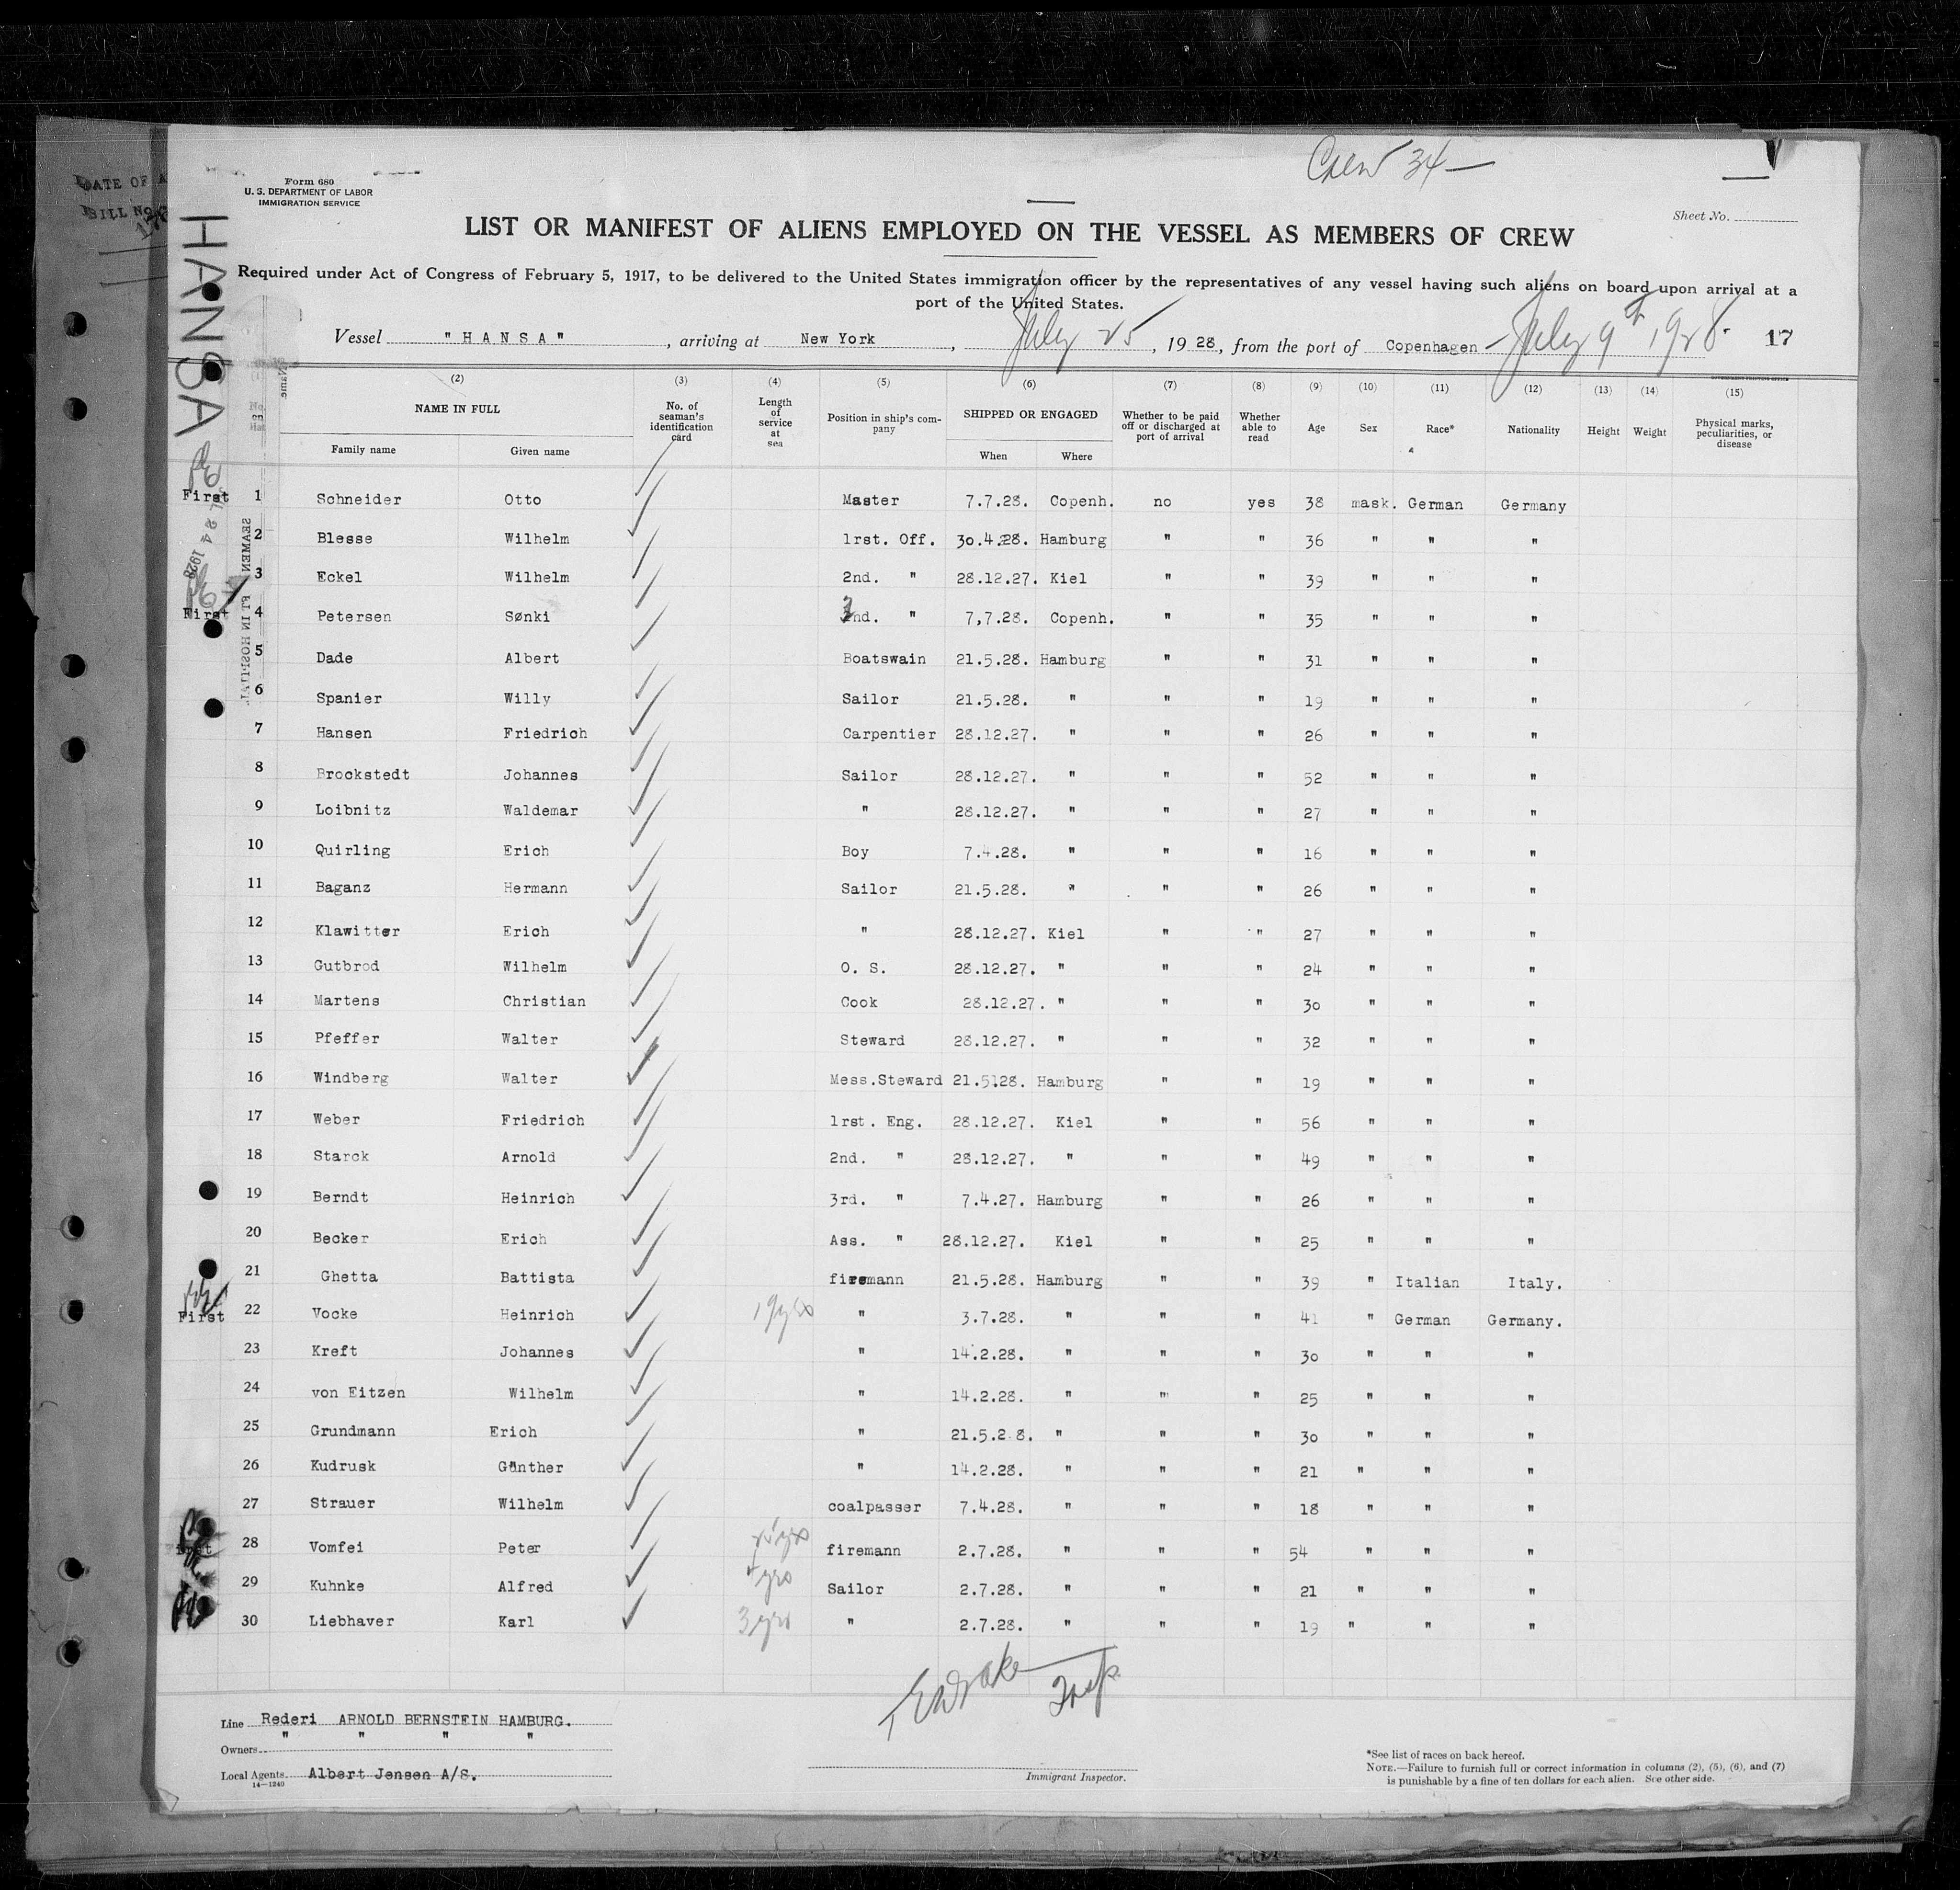 Crew 34—
DATE OF A
BILL No.
Form 680
U. S. DEPARTMENT OF LABOR
IMMIGRATION SERVICE
Sheet No.
LIST OR MANIFEST OF ALIENS EMPLOYED ON THE VESSEL AS MEMBERS OF CREW
Required under Act of Congress of February 5, 1917, to be delivered to the United States immigration officer by the representatives of any vessel having such aliens on board upon arrival at a
port of the United States.
HANSA
Vessel "HANSA" , arriving at New York , July 25 , 1928, from the port of Copenhagen - July 9th 1928. 17
(2) (3) (4) (5) (6) (7) (8) (9) (10) (11) (12) (13) (14) (15)
NAME IN FULL No. of seaman's identification card Length of service at sea Position in ship's company SHIPPED OR ENGAGED Whether to be paid off or discharged at port of arrival Whether able to read Age Sex Race* Nationality Height Weight Physical marks, peculiarities, or disease
Family name Given name When Where
First 1 Schneider Otto Master 7.7.28. Copenh. no yes 38 mask. German Germany
2 Blesse Wilhelm 1rst. Off. 30.4.28. Hamburg " " 36 " " "
3 Eckel Wilhelm 2nd. " 28.12.27. Kiel " " 39 " " "
First 4 Petersen Sønki 3nd. " 7,7.28. Copenh. " " 35 " " "
5 Dade Albert Boatswain 21.5.28. Hamburg " " 31 " " "
6 Spanier Willy Sailor 21.5.28. " " " 19 " " "
7 Hansen Friedrich Carpentier 28.12.27. " " " 26 " " "
8 Brockstedt Johannes Sailor 28.12.27. " " " 52 " " "
9 Loibnitz Waldemar " 28.12.27. " " " 27 " " "
10 Quirling Erich Boy 7.4.28. " " " 16 " " "
11 Baganz Hermann Sailor 21.5.28. " " " 26 " " "
12 Klawitter Erich " 28.12.27. Kiel " " 27 " " "
13 Gutbrod Wilhelm O. S. 28.12.27. " " " 24 " " "
14 Martens Christian Cook 28.12.27. " " " 30 " " "
15 Pfeffer Walter Steward 28.12.27. " " " 32 " " "
16 Windberg Walter Mess.Steward 21.5128. Hamburg " " 19 " " "
17 Weber Friedrich 1rst. Eng. 28.12.27. Kiel " " 56 " " "
18 Starck Arnold 2nd. " 28.12.27. " " " 49 " " "
19 Berndt Heinrich 3rd. " 7.4.27. Hamburg " " 26 " " "
20 Becker Erich Ass. " 28.12.27. Kiel " " 25 " " "
21 Ghetta Battista firemann 21.5.28. Hamburg " " 39 " Italian Italy.
First 22 Vocke Heinrich 19yrs " 3.7.28. " " " 41 " German Germany.
23 Kreft Johannes " 14.2.28. " " " 30 " " "
24 von Eitzen Wilhelm " 14.2.28. " " " 25 " " "
25 Grundmann Erich " 21.5.2 8. " " " 30 " " "
26 Kudrusk Günther " 14.2.28. " " " 21 " " "
27 Strauer Wilhelm coalpasser 7.4.28. " " " 18 " " "
First 28 Vomfei Peter firemann 2.7.28. " " " 54 " " "
29 Kuhnke Alfred yrs Sailor 2.7.28. " " " 21 " " "
30 Liebhaver Karl 3 yrs " 2.7.28. " " " 19 " " "
Insp.
Line Rederi ARNOLD BERNSTEIN HAMBURG.
Owners " " " "
Local Agents Albert Jensen A/S.
14—1240
Immigrant Inspector.
*See list of races on back hereof.
NOTE.—Failure to furnish full or correct information in columns (2), (5), (6), and (7)
is punishable by a fine of ten dollars for each alien. See other side.